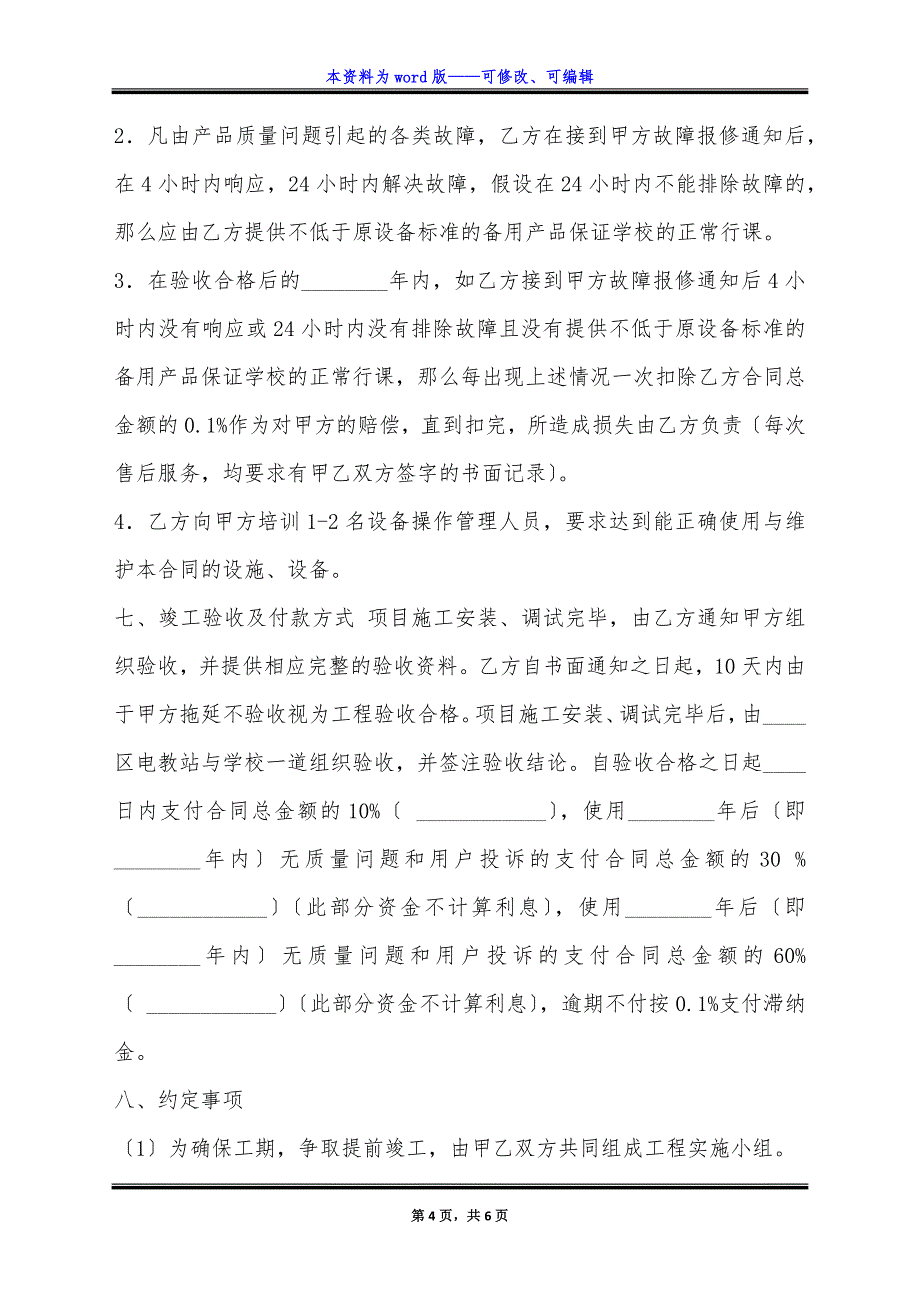 本资料为 word 版——可修改、可编辑
2．凡由产品质量问题引起的各类故障，乙方在接到甲方故障报修通知后，
在 4 小时内响应，24 小时内解决故障，假设在 24 小时内不能排除故障的，
那么应由乙方提供不低于原设备标准的备用产品保证学校的正常行课。
3．在验收合格后的________年内，如乙方接到甲方故障报修通知后 4 小
时内没有响应或 24 小时内没有排除故障且没有提供不低于原设备标准的
备用产品保证学校的正常行课，那么每出现上述情况一次扣除乙方合同总
金额的 0.1%作为对甲方的赔偿，直到扣完，所造成损失由乙方负责〔每次
售后服务，均要求有甲乙双方签字的书面记录〕。
4．乙方向甲方培训 1-2 名设备操作管理人员，要求达到能正确使用与维
护本合同的设施、设备。
七、竣工验收及付款方式 项目施工安装、调试完毕，由乙方通知甲方组
织验收，并提供相应完整的验收资料。乙方自书面通知之日起，10 天内由
于甲方拖延不验收视为工程验收合格。项目施工安装、调试完毕后，由____
区电教站与学校一道组织验收，并签注验收结论。自验收合格之日起____
日内支付合同总金额的 10%〔 ____________〕，使用________年后〔即
________年内〕无质量问题和用户投诉的支付合同总金额的 30 %
〔____________〕〔此部分资金不计算利息〕，使用________年后〔即
________年内〕无质量问题和用户投诉的支付合同总金额的 60%
〔 ____________〕〔此部分资金不计算利息〕，逾期不付按 0.1%支付滞纳
金。
八、约定事项
〔1〕为确保工期，争取提前竣工，由甲乙双方共同组成工程实施小组。
第 4 页，共 6 页